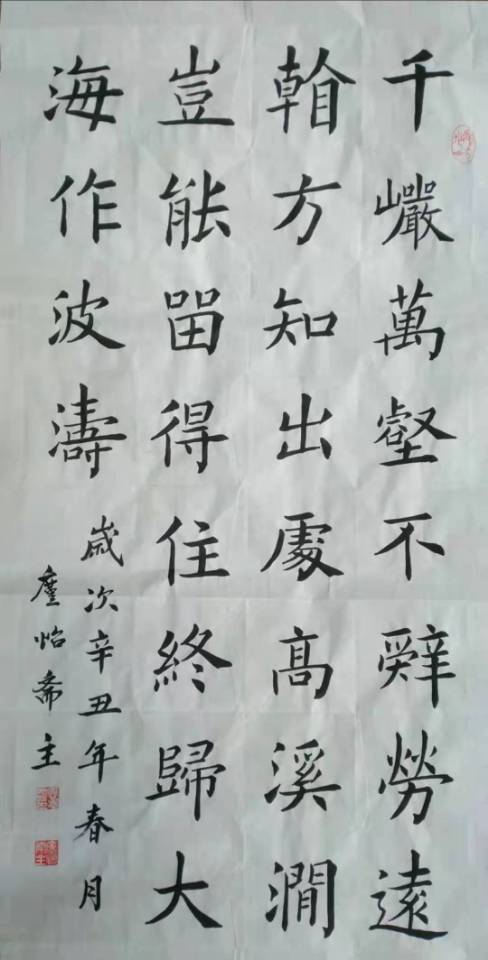 千巗萬壑不辤勞遠
看方知出處高溪澗
豈能留得住終歸大
海作波濤
歲次辛丑年春月
怡斋主